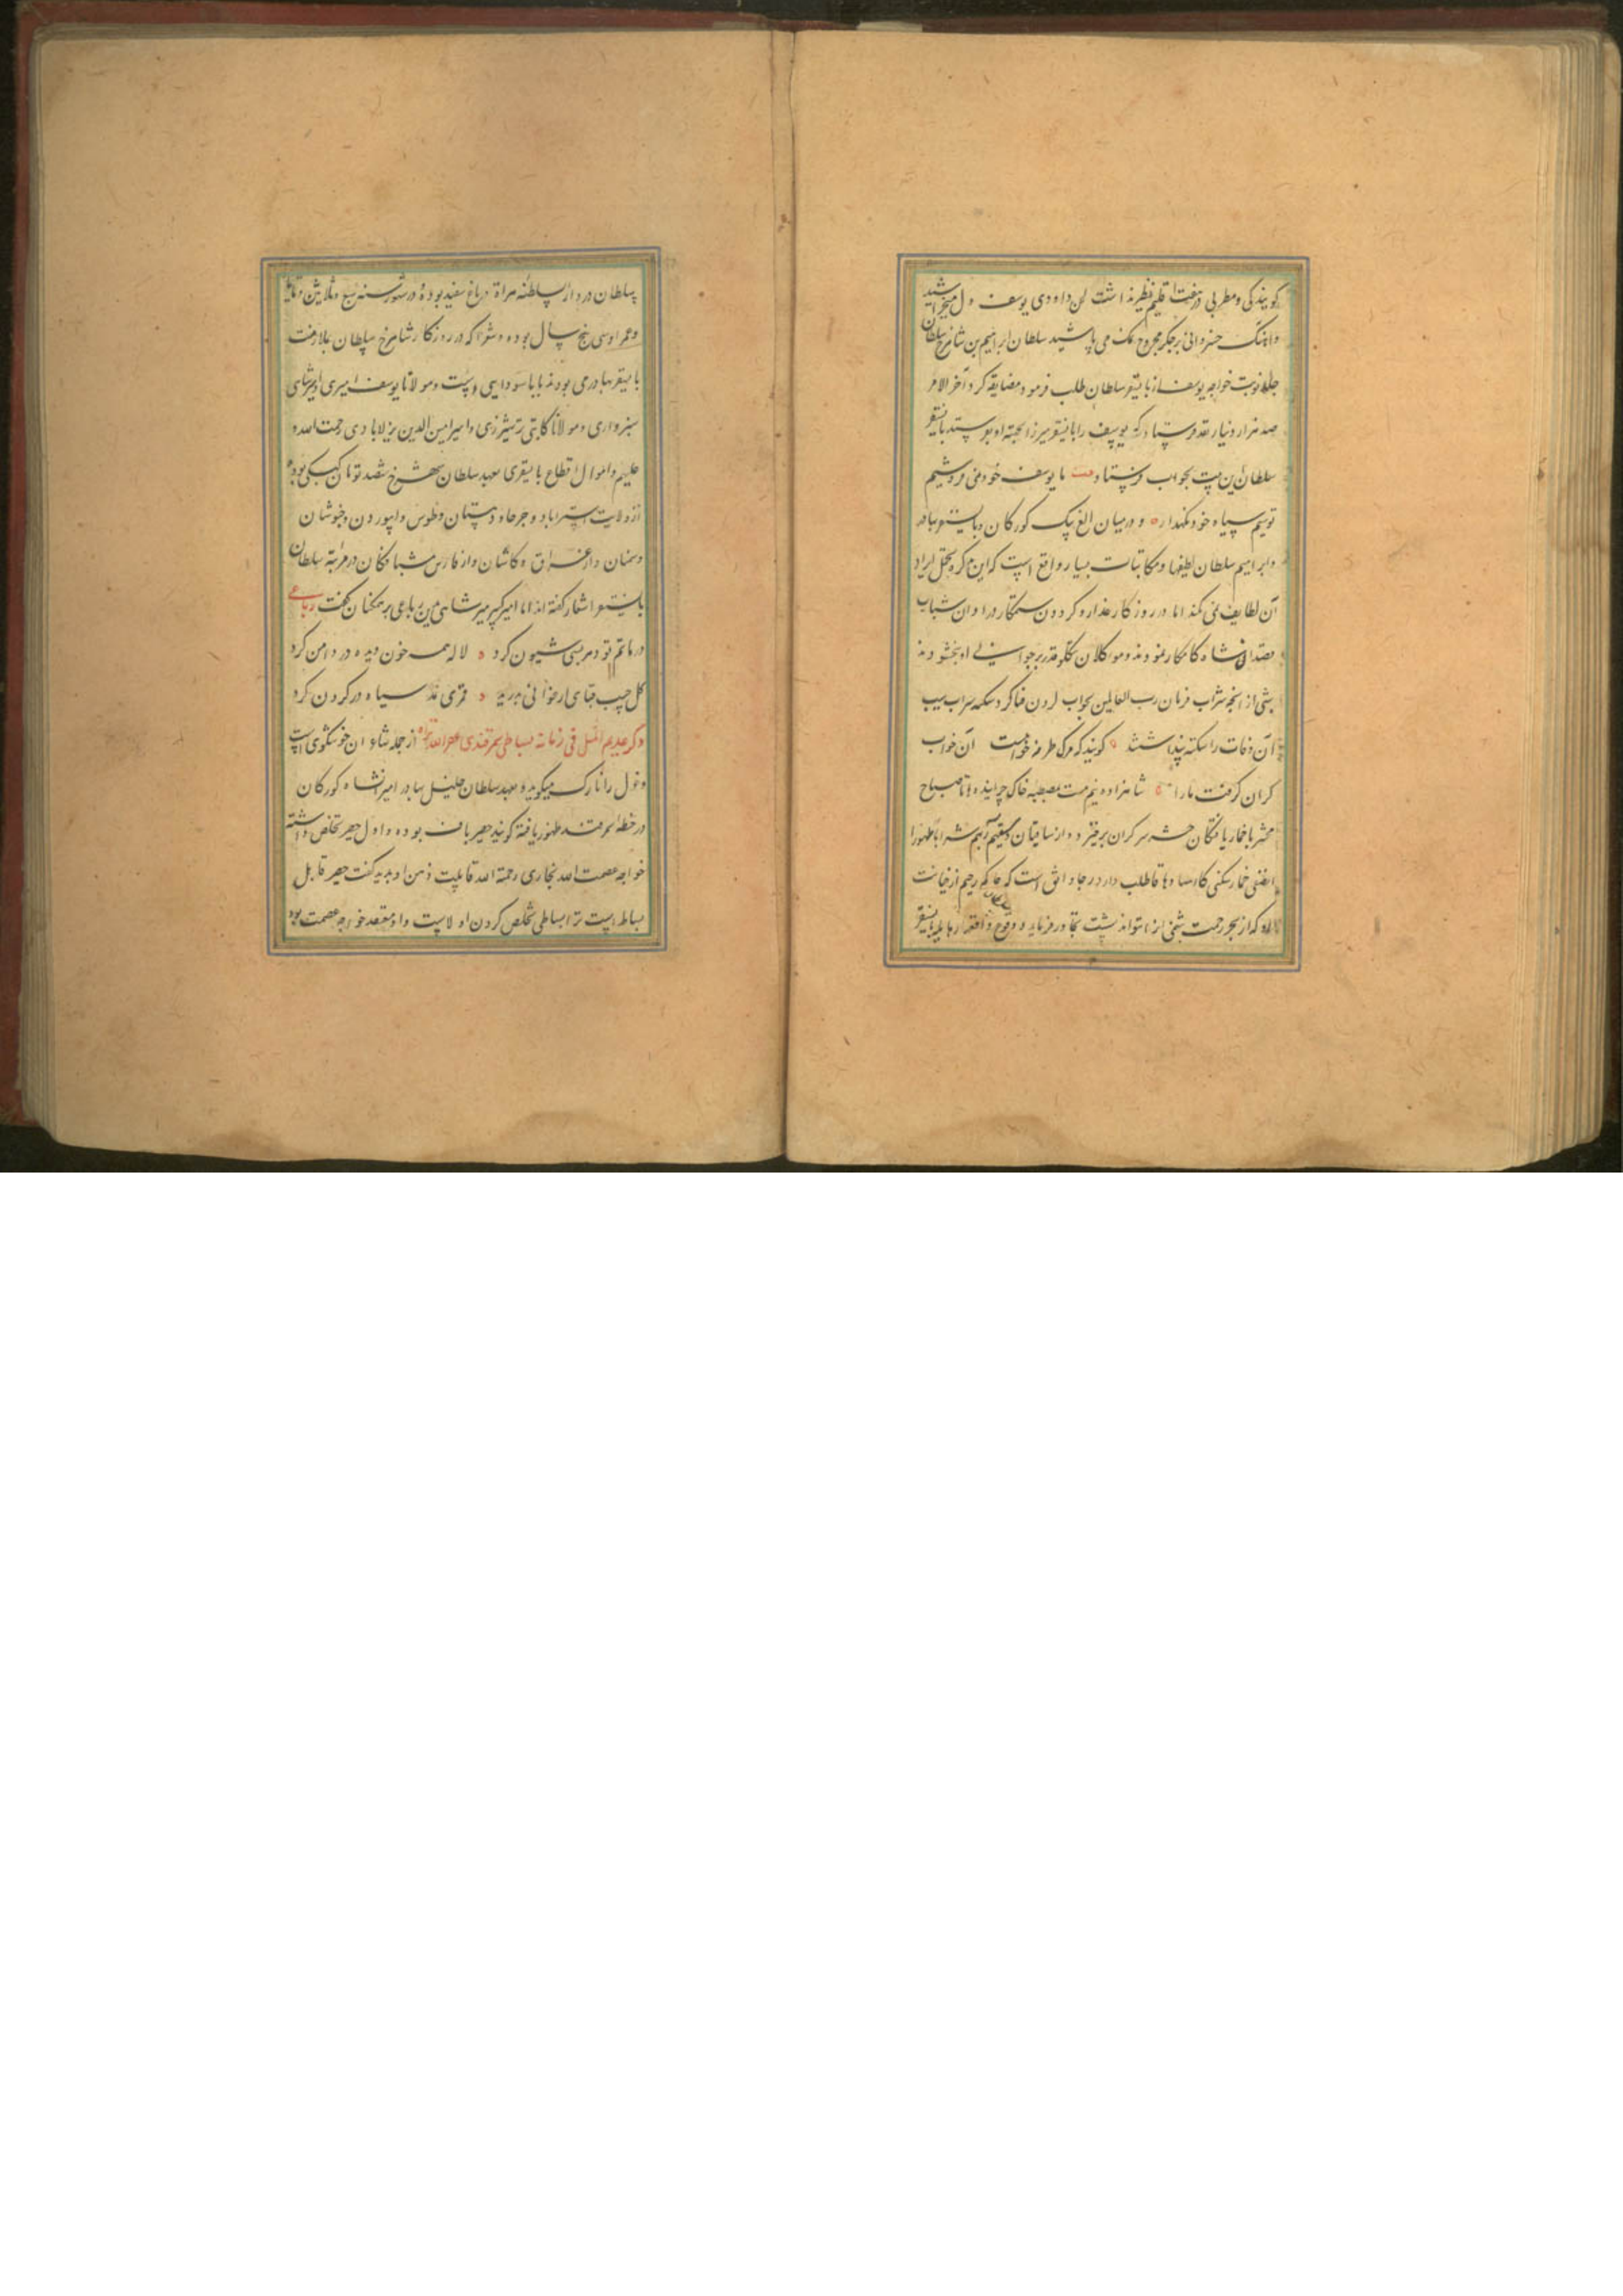 گویندگی و مطربی در هفت اقلیم نظیر نداشت لحن داودی یوسف دل میخراشید
و آهنگ خسروانی بر جگر مجروح نمک می پاشید سلطان ابراهیم بن شاهرخ سلطان
نوبت خواجه یوسف از بایسنقر سلطان طلب فرمود مضایقه کرد آخر الامر
صد هزار دینار نقد فرستاد که یوسف را بایسنقر میرزا جهته او بفرستد بایسنقر
سلطان این بیت بجواب فرستاد بیت ما یوسف خود نمی فروشیم
تو سیم سیاه خود نگهدار و در میان الغ بیک کورکان و بایسنقر بهادر
و ابراهیم سلطان لطیفها و مکاتبات بسیار واقع است که این تذکره تحمل ایراد
آن لطایف نمی کند اما روزگار غدار و گردون ستمکار در اوان شباب
قصد آن شاه کامکار نمودند و موکلان قضا و قدر بر جوانی او نبخشودند
شبی از شراب فرمان رب العالمین بخواب کردن فنا گرفتار
آن وفات را سکته پنداشتند گویند که مرگ طرفه خوابیست آن خواب
گران گرفت ما را شاهزاده نیم مست بمصطبه خاک تا صباح
محشر با خمار یافتگان حشر سر گران برخیزد و از ساقیان و سقیهم ربهم شرابا طهورا
خمار شکنی کاسا دهاقا طلب دارد رجا واثق است که حاکم رحیم از خیانت
او که از بحر رحمت تواند نشست تجاوز فرماید و وقوع واقعه بایسنقر
سلطان در دار السلطنه هراة در باغ سفید بوده در شهور سنه سبع و ثلاثین و ثمانمایه
و عمر او سی پنج سال بوده و شعرا که در روزگار شاهرخ سلطان بملازمت
بایسنقر بهادر می بودند بابا سودایی است و مولانا یوسف امیری و امیر شاهی
سبزواری و مولانا کاتبی ترشیزی و امیر امین الدین نزلابادی رحمت الله
علیهم و اموال اقطاع بایسنقری بعهد سلطان شاهرخ ششصد تومان کبکی بوده
از ولایت استراباد و جرجان و دهستان و طوس و ابیورد و خبوشان
و سمنان و از عراق کاشان و از فارس شبانکان در مرثیه سلطان
بایسنقر اشعار گفته اند اما امیر کبیر میر شاهی این رباعی بر همکنان گفت رباعی
در ماتم تو دهر بسی شیون کرد لاله همه خون دیده در دامن کرد
گل جیب قبای ارغوانی بدرید قمری نمد سیاه در گردن کرد
ذکر عدیم المثل فی زمانه بساطی سمرقندی غفر الله از جمله شاعران خوشگوی است
و غزل را نازک میگوید و بعهد سلطان خلیل بهادر امیرانشاه کورکان
در خطه سمرقند ظهور یافته گویند حصیر باف بوده و اول حصیری تخلص داشته
خواجه عصمت الله بخاری رحمة الله قابلیت ذهن او بدید گفت حصیر قابل
بساط نیست ترا بساطی تخلص کردن اولیست و او معتقد خواجه عصمت بود